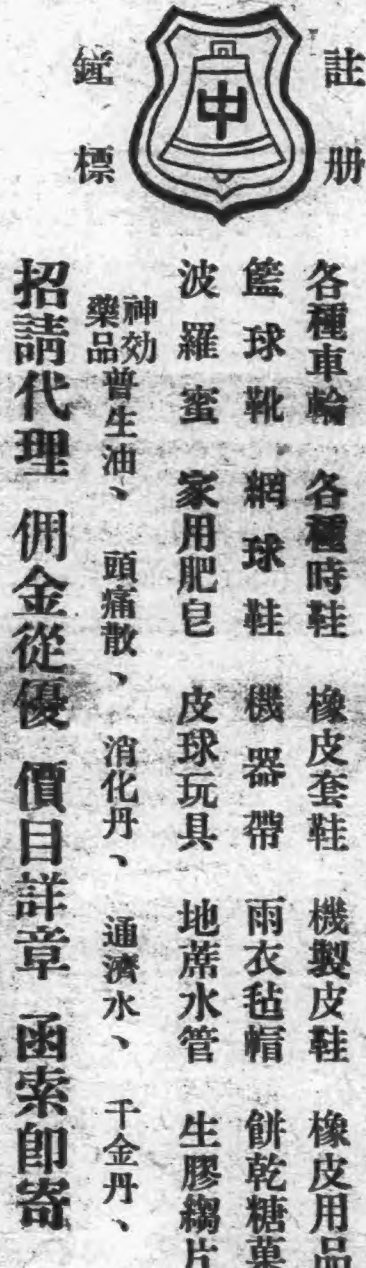 註册
中
鐘標
各種車輪 各種時鞋 橡皮套鞋 機製皮鞋 橡皮用品
籃球靴 網球鞋 機器帶 雨衣毡帽 餅乾糖菓
波羅蜜 家用肥皂 皮球玩具 地蓆水管 生膠縐片
神効藥品普生油、 頭痛散、 消化丹、 通濟水、 千金丹、
招請代理 佣金從優 價目詳章 函索卽寄